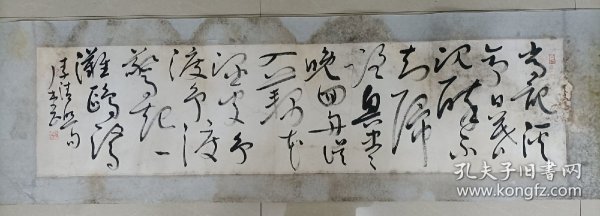 常记溪
亭日暮
沉醉不
知歸
路興尽
晚回舟误
入藕花
深处争
渡争渡
驚起一
灘鷗鹭
李清照句
孔夫子旧书网
www.kongfz.com